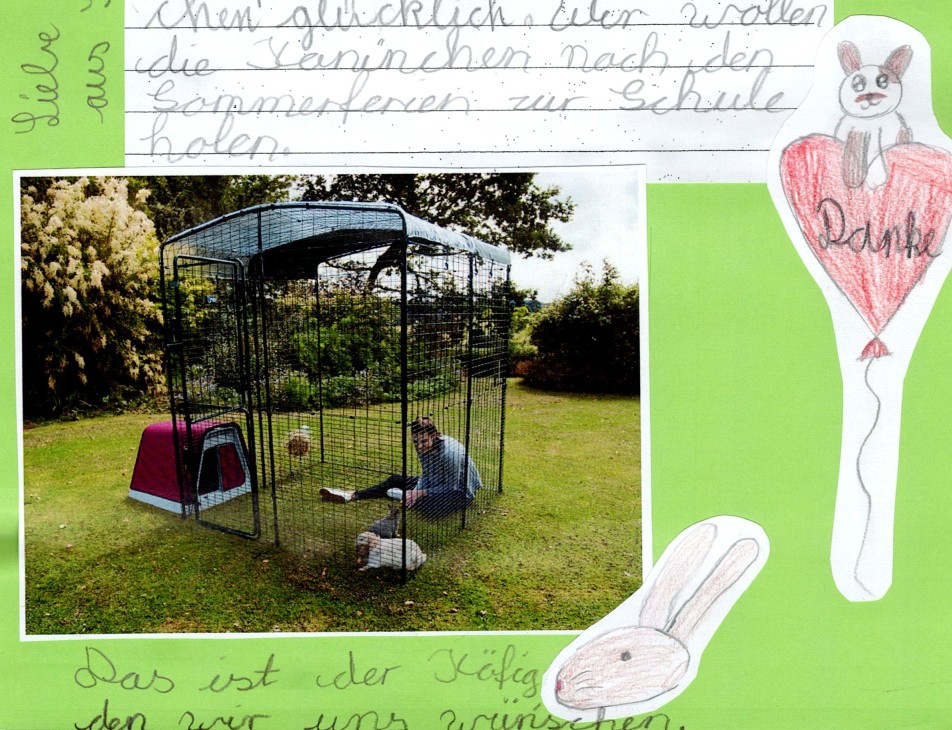 chen glücklich. Wir wollen
die Kaninchen nach den
Sommerferien zur Schule
holen.
Liebe
aus
Danke
Das ist der Käfig
den wir uns wünschen.